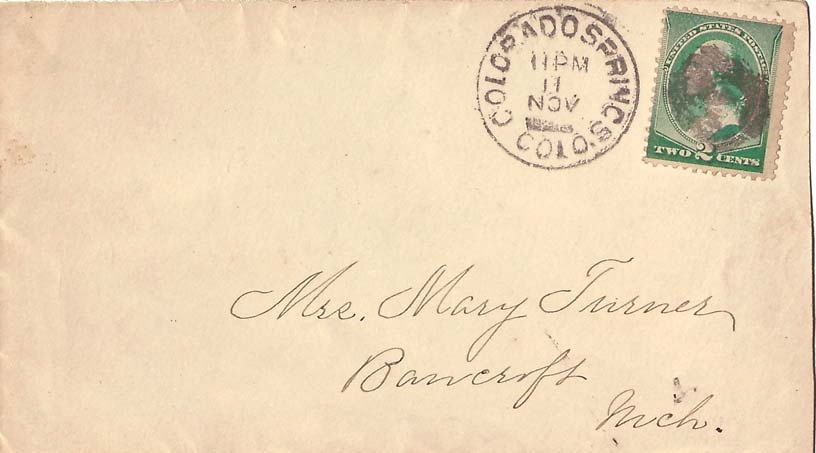 COLORADO SPRINGS COLO.
11 PM
11
NOV
UNITED STATES POSTAGE
TWO 2 CENTS
Mrs. Mary Turner
Bancroft
Mich.